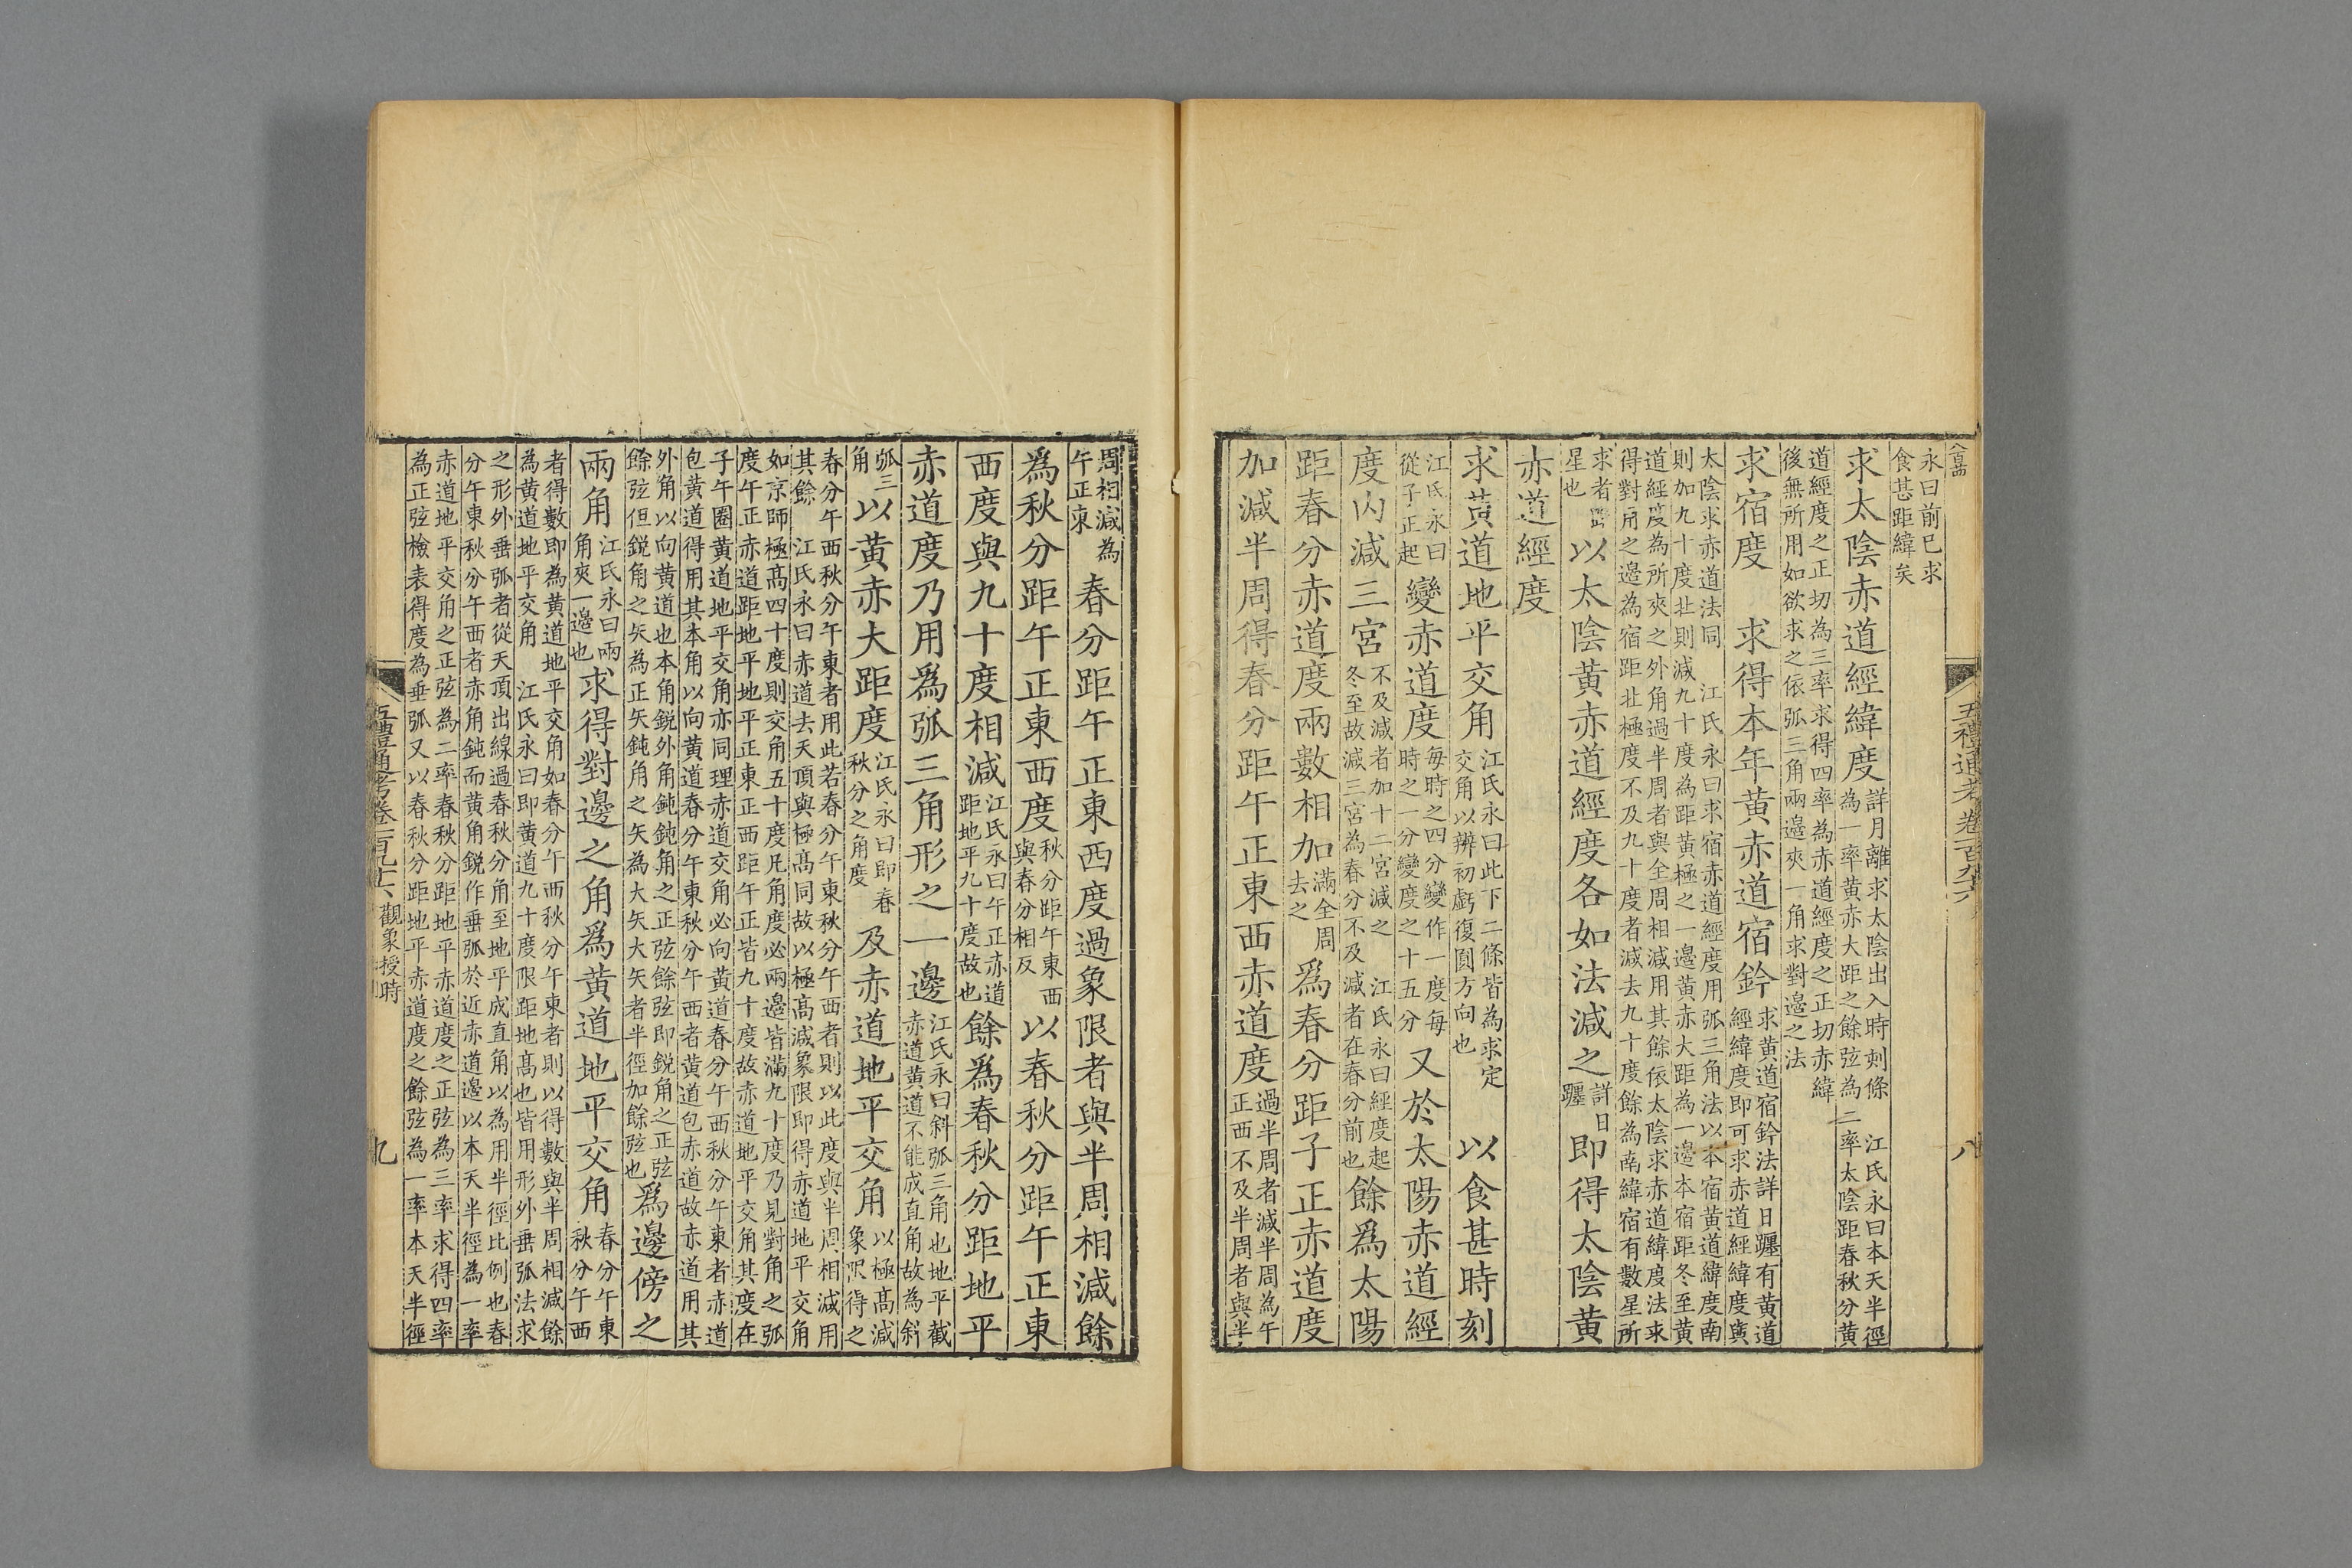 五禮通考卷一百九十六
八
永曰前已求
食甚距緯矣
求太陰赤道經緯度詳月離求太陰出入時刻條　江氏永曰本天半徑
為一率黃赤大距之餘弦為二率太陰距春秋分黃
道經度之正切為三率求得四率為赤道經度之正切赤緯
後無所用如欲求之依弧三角兩邊夾一角求對邊之法
求宿度　求得本年黃赤道宿鈐求黃道宿鈐法詳日躔有黃道
經緯度即可求赤道經緯度與
太陰求赤道法同　江氏永曰求宿赤道經度用弧三角法以本宿黃道緯度南
則加九十度北則減九十度為距黃極之一邊黃赤大距為一邊本宿距冬至黃
道經度為所夾之外角過半周者與全周相減用其餘依太陰求赤道緯度法求
得對角之邊為宿距北極度不及九十度者減去九十度餘為南緯宿有數星所
求者距
星也以太陰黃赤道經度各如法減之詳日
躔即得太陰黃
赤道經度
求黃道地平交角江氏永曰此下二條皆為求定
交角以辨初虧復圓方向也　以食甚時刻
江氏永曰
從子正起變赤道度每時之四分變作一度每
時之一分變度之十五分又於太陽赤道經
度內減三宮不及減者加十二宮減之　江氏永曰經度起
冬至故減三宮為春分不及減者在春分前也餘為太陽
距春分赤道度兩數相加滿全周
去之為春分距子正赤道度
加減半周得春分距午正東西赤道度過半周者減半周為午
正西不及半周者與半
周相減為
午正東春分距午正東西度過象限者與半周相減餘
為秋分距午正東西度秋分距午東西
與春分相反以春秋分距午正東
西度與九十度相減江氏永曰午正赤道
距地平九十度故也餘為春秋分距地平
赤道度乃用為弧三角形之一邊江氏永曰斜弧三角也地平截
赤道黃道不能成直角故為斜
弧三
角以黃赤大距度江氏永曰即春
秋分之角度及赤道地平交角以極高減
象限得之
春分午西秋分午東者用此若春分午東秋分午西者則以此度與半周相減用
其餘　江氏永曰赤道去天頂與極高同故以極高減象限即得赤道地平交角
如京師極高四十度則交角五十度凡角度必兩邊皆滿九十度乃見對角之弧
度午正赤道距地平地平正東正西距午正皆九十度故赤道地平交角其度在
子午圈黃道地平交角亦同理赤道交角必向黃道春分午西秋分午東者赤道
包黃道得用其本角以向黃道春分午東秋分午西者黃道包赤道故赤道用其
外角以向黃道也本角銳外角鈍鈍角之正弦餘弦即銳角之正弦
餘弦但銳角之矢為正矢鈍角之矢為大矢大矢者半徑加餘弦也為邊傍之
兩角江氏永曰兩
角夾一邊也求得對邊之角為黃道地平交角春分午東
秋分午西
者得數即為黃道地平交角如春分午西秋分午東者則以得數與半周相減餘
為黃道地平交角　江氏永曰即黃道九十度限距地高也皆用形外垂弧法求
之形外垂弧者從天頂出線過春秋分角至地平成直角以為用半徑比例也春
分午東秋分午西者赤角鈍而黃角銳作垂弧於近赤道邊以本天半徑為一率
赤道地平交角之正弦為二率春秋分距地平赤道度之正弦為三率求得四率
為正弦檢表得度為垂弧又以春秋分距地平赤道度之餘弦為一率本天半徑
五禮通考卷一百九十六　觀象授時
九